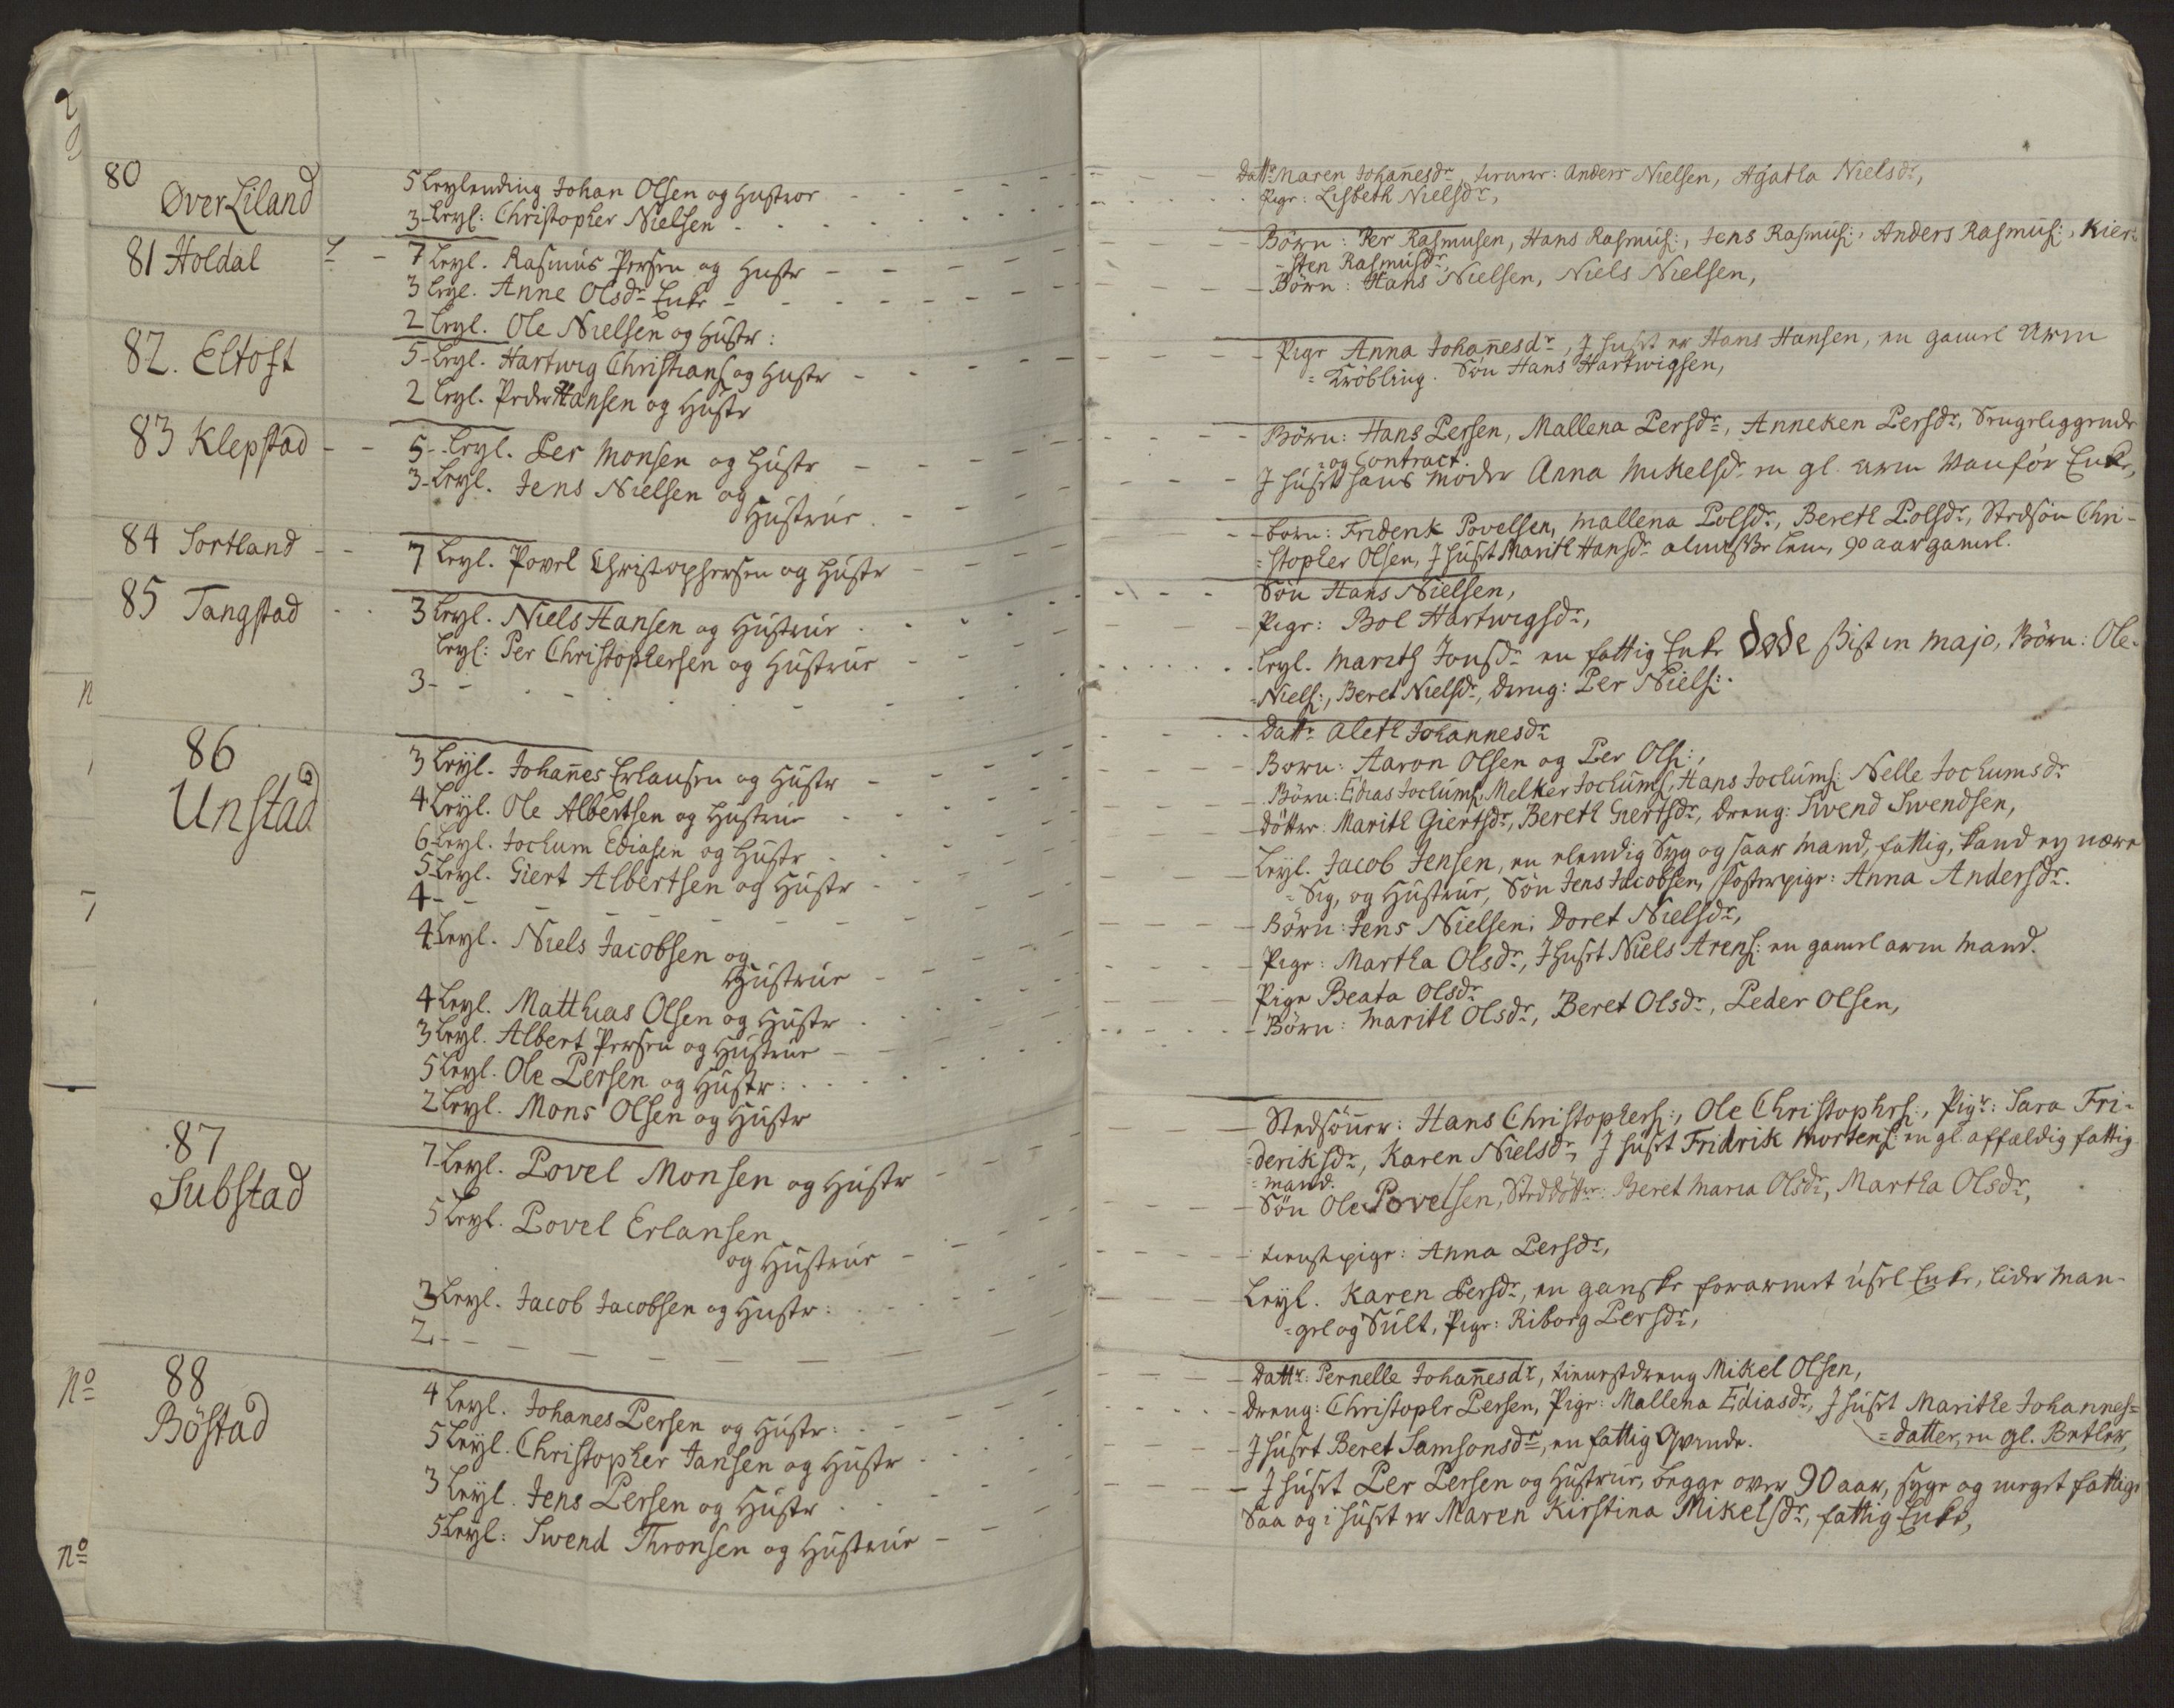 80
Øver Liland
5 Leylending Johan Olsen og Hustroe
3 Leyl: Christopher Nielsen
81 Holdal
7 Leyl. Rasmus Persen og Hustr
3 Leyl. Anne Olsdr Enke
2 Leyl. Ole Nielsen og Hustr:
82. Eltoft
5 Leyl. Hartwig Christians og Hustr
2 Leyl. Peder Hansen og Hustr
83 Klepstad
5 Leyl. Per Monsen og Hustr
3 Leyl. Jens Nielsen og
Hustrue
84 Sortland
7 Leyl. Povel Christophersen og Hustr
85 Tangstad
3 Leyl. Niels Hansen og Hustrue
Leyl: Per Christophersen og Hustrue
3
86
Unstad
3 Leyl. Johañes Erlansen og Hustr
4 Leyl. Ole Albertsen og Hustrue
6 Leyl. Jochum Ediasen og Hustr
5 Leyl. Giert Albertsen og Hustr
4
4 Leyl. Niels Jacobsen og
Hustrue
4 Leyl. Matthias Olsen og Hustr
3 Leyl. Albert Persen og Hustrue
5 Leyl. Ole Persen og Hustr:
2 Leyl. Mons Olsen og Hustr
87
Substad
7 Leyl. Povel Monsen og Hustr
5 Leyl. Povel Erlansen
og Hustrue
3 Leyl. Jacob Jacobsen og Hustr:
2
No
88
Böstad
4 Leyl. Johanes Persen og Hustr:
5 Leyl. Christopher Jansen og Hustr
3 Leyl. Jens Persen og Hustr
5 Leyl: Swend Thronsen og Hustrue
No
Dattr Maren Johañesdr, Anders Nielsen, Agatha Nielsdr,
Pige: Lisbeth Nielsdr,
Börn: Per Rasmusen, Hans Rasmus:, Jens Rasmus:, Anders Rasmus:, Kier-
sten Rasmusdr
Börn: Hans Nielsen, Niels Nielsen,
Pige Anna Johañesdr, J huset er Hans Hansen, en gamel Arm
=Kröbling. Sön Hans Hartwigsen,
Börn: Hans Persen, Mallena Persdr, Anneken Persdr, Sengeliggende
=og Contract.
J huset hans moder Anna Mikelsdr en gl. arm Vanför Enke,
born: Friderik Povelsen, Mallena Polsdr, Bereth Polsdr, Stedsön Chri-
=stopher Olsen, J huset Marith Hansdr almisse lem, 90 aar gamel.
Sön Hans Nielsen,
Pige: Bol Hartwigsdr,
Leyl. Marith Jonsdr en fattig Enke Döde sidst in majo, Börn: Ole
Niels:, Beret Nielsdr, dreng: Per Niels:
Dattr Aleth Johannesdr
Born: Aaron Olsen og Per Ols:,
Börn: Edias Jochums: Melker Jochums, Hans Jochums: Nelle Jochumsdr
döttre: Marith Giertsdr, Bereth Giertsdr, dreng: Swend Swendsen,
Leyl. Jacob Jensen, en elendig Syg og saar mand, fattig, kand ey nære
=Sig, og Hustrue, Sön Jens Jacobsen, fosterpige: Anna Andersdr.
Börn: Jens Nielsen, Doret Nielsdr,
Pige: Martha Olsdr, J huset Niels Arens: en gamel arm mand.
Pige Beata Olsdr
Börn: Marith Olsdr, Beret Olsdr, Peder Olsen,
Stedsöñer: Hans Christophers:, Ole Christophrs:, Pigr: Sara Fri-
deriksdr, Karen Nielsdr, J huset Fridrik Mortens: en gl. affældig fattig
=mand.
Sön Ole Povelsen, Steddöttre: Beret Maria Olsdr, Martha Olsdr,
tienstpige: Anna Persdr,
Leyl. Karen Persdr, en ganske forarmet usel Enke, lider man-
=gel og Sult, Pige: Riborg Persdr,
Dattr: Pernelle Johañesdr, tienestdreng Mikel Olsen,
Dreng: Christophr Persen, Pige: Mallena Ediasdr, J huset Marithe Johannes=
=datter, en gl. Betler,
J huset Beret Samsonsdr, en fattig Qvinde.
J huset Per Persen og Hustrue, begge over 90 aar, syge og meget fattige
Saa og i huset er Maren Kirstina Mikelsdr, fattig Enke,